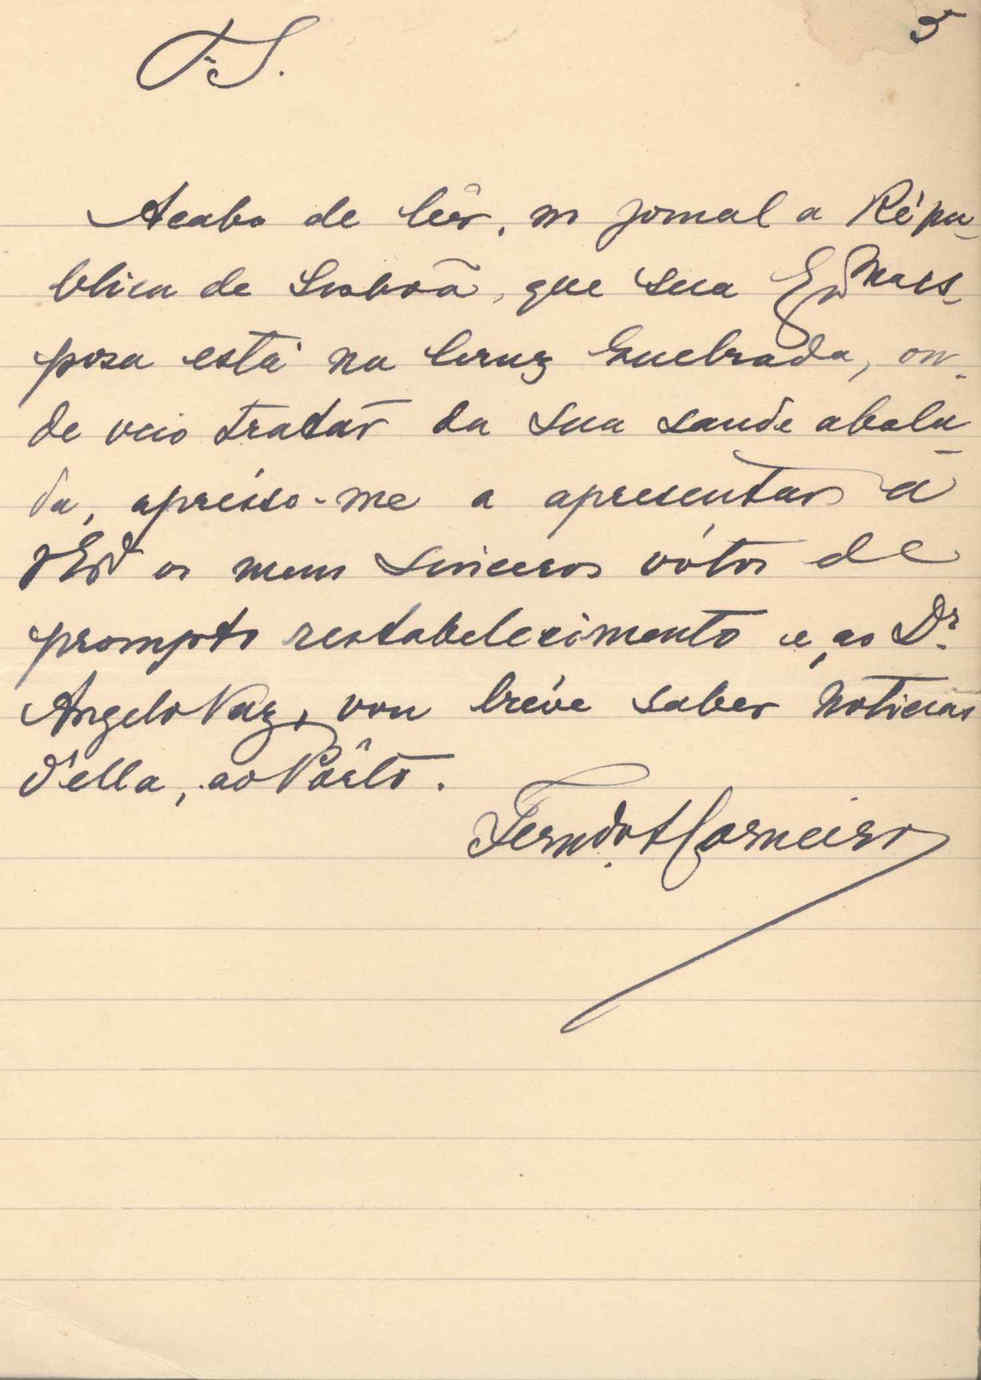 5
Acabo de lêr, no jornal a Répu-
blica de Lisbôa, que sua Exma es-
posa está na Cruz Quebrada, on-
de veio tratar da sua saude abala-
da, aprésso-me a apresentar á
V Exª os meus sinceros vótos de
prompto restabelecimento e, ao Dr.
Angelo Vaz, vou bréve saber noticias
d'ella, ao Pôrto.
Ferndo A Carneiro